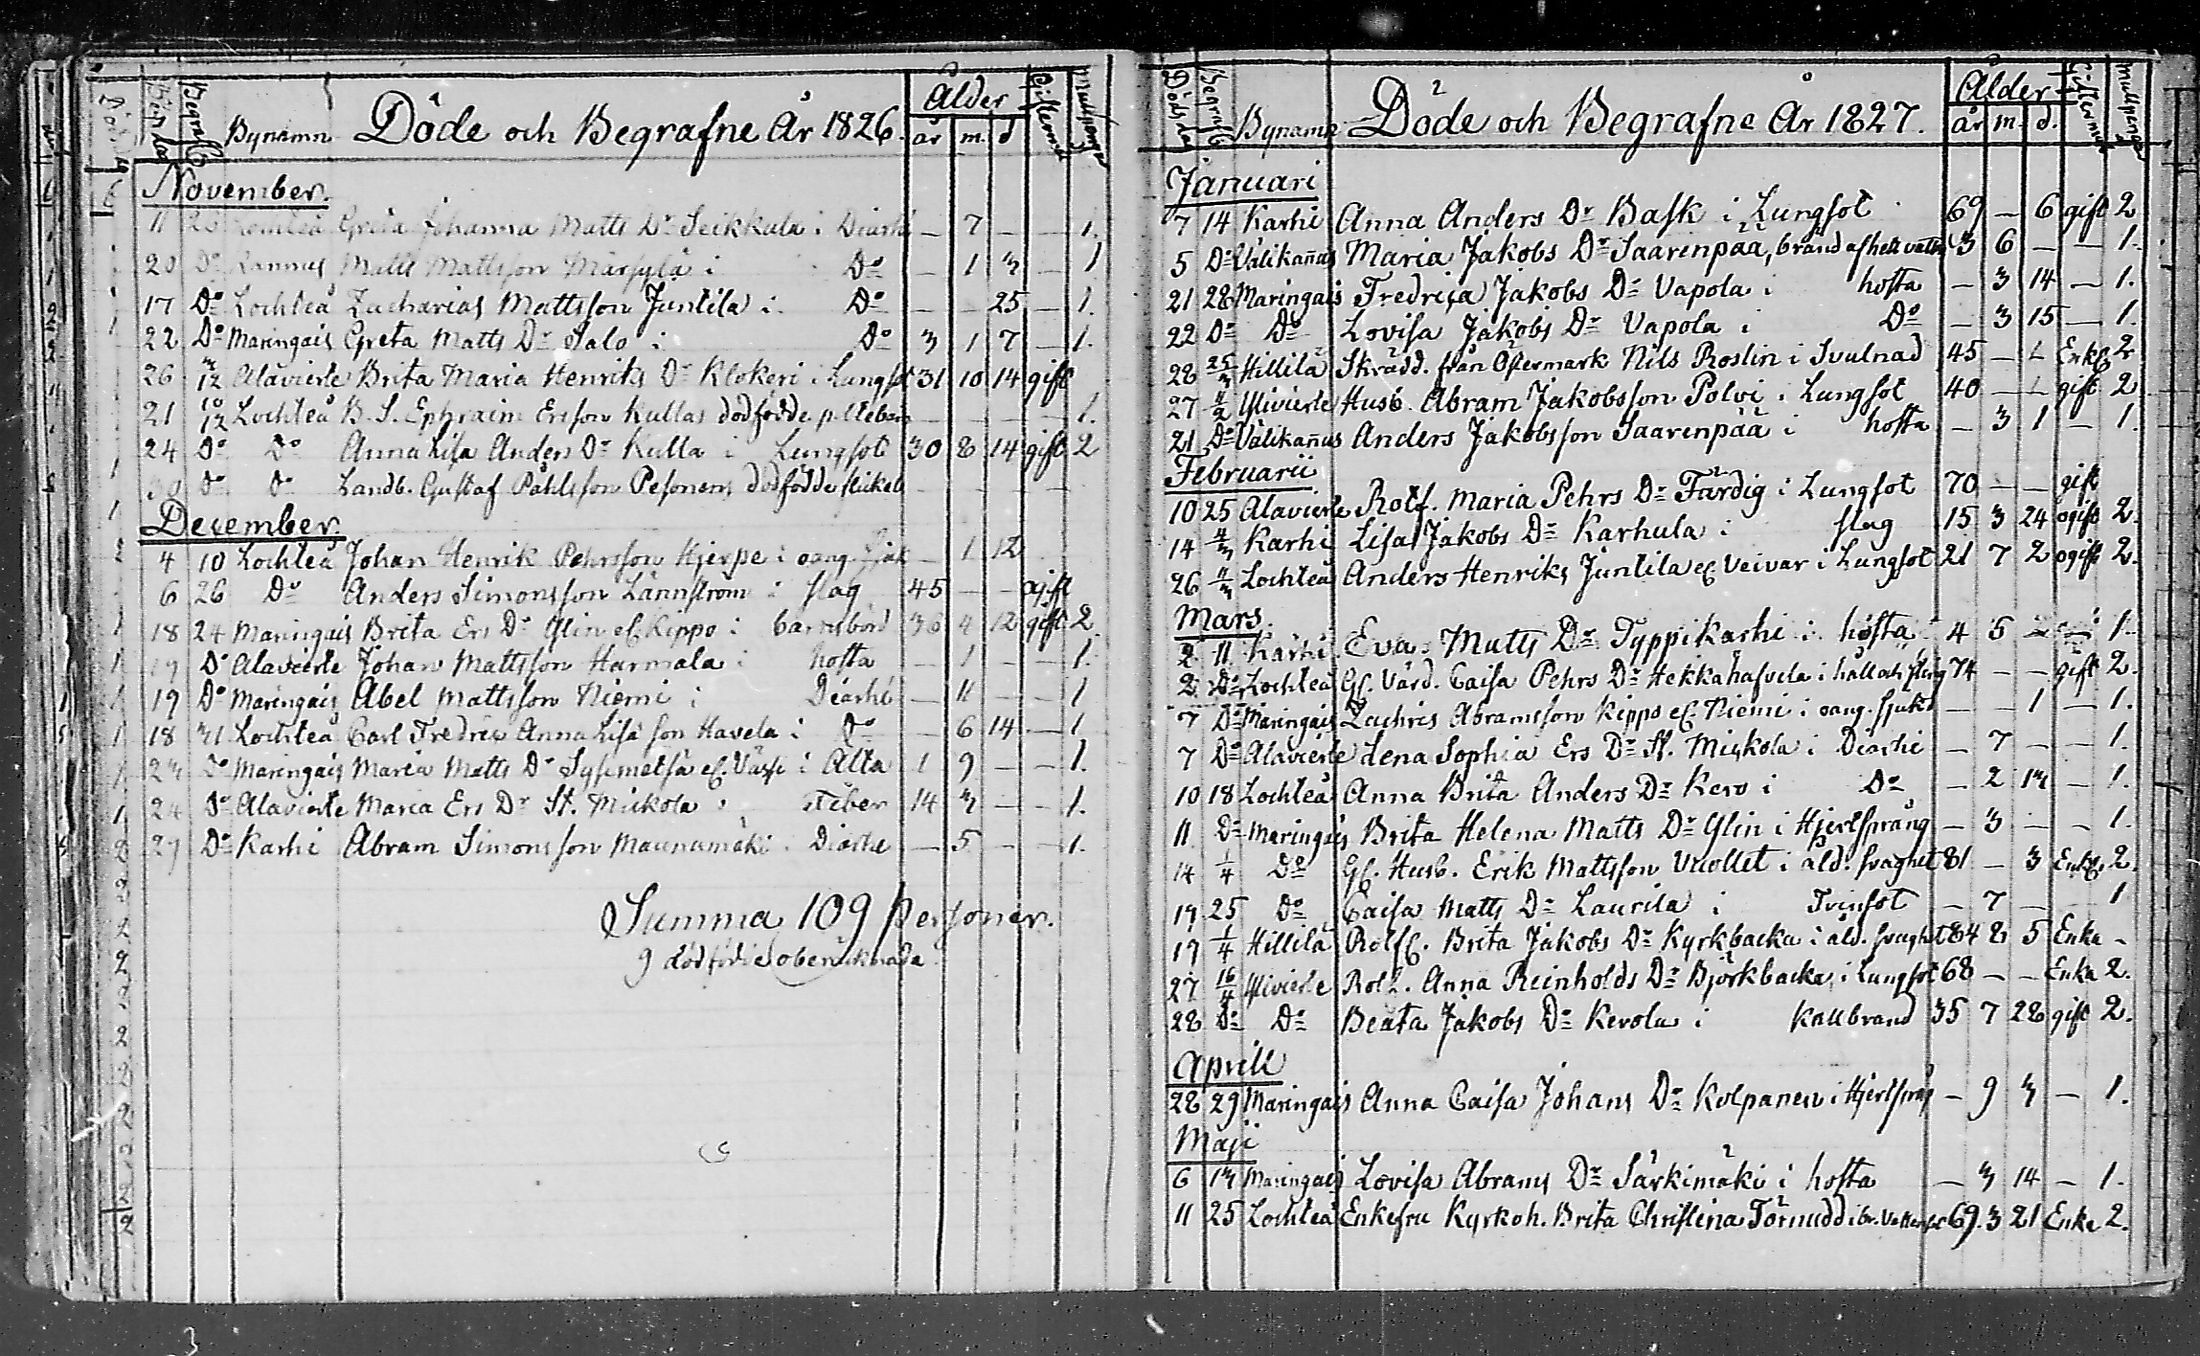 Födelsedag Begrafn. Bynamn Döde och Begrafne År 1826. Ålder år m. d. Gifterm. Mullpengar
November.
11 26 Lochteå Greta Johanna Matts Dr Seikkula i Diarhé — 7 — — 1.
20 Do Kannus Matts Mattsson Märsylä i Do — 1 3 — 1
17 Do Lochteå Zacharias Mattsson Juntila i Do — — 25 — 1.
22 Do Maringais Greta Matts Dr Salo i Do 3 1 7 — 1.
26 3/12 Alavierte Brita Maria Henriks Dr Klokeri i Lungsot 31 10 14 gift
21 10/12 Lochteå B. S. Ephraim Ersson Kullas dödfödde p. — — — — 1.
24 Do Do Anna Lisa Anders Dr Kulla i Lungsot 30 8 14 gift 2
30 Do Do Landb. Gustaf Påhlsson Pesonens dödfödde flickeb — — — —
December.
4 10 Lochteå Johan Henrik Pehrsson Hjerpe i oang. Sjuk — 1 12
6 26 Do Anders Simonsson Lännström i slag 45 — — ogift
18 24 Maringais Brita Ers Dr Ylin el. Kippo i barnsbörd 36 4 12 gift 2
19 Do Alavierte Johan Mattsson Harmala i hosta — 1 — — 1.
19 Do Maringais Abel Mattsson Niemi i Diarhé — 11 — — 1
18 31 Lochteå Carl Fredric Anna Lisa son Havela i Do — 6 14 — 1
23 Do Maringais Maria Matts Dr Sysimetsä el. i Alta 1 9 — — 1.
24 Do Alavierte Maria Ers Dr St. Miskola i feber 14 3 — — 1.
29 Do Karhi Abram Simonsson Maunumäki i Diarhe — 5 — — 1.
Summa 109 personer.
9 dödfödde oberäknade.
Dödsdag Begrafn. Bynamn Döde och Begrafne År 1827. Ålder år m. d. Gifterm. Mullpengar
Januari
7 14 Karhi Anna Anders Dr Bask i Lungsot 69 — 6 gift 2
5 Do Välikañus Maria Jakobs Dr Saarenpää, bränd af hett vatten 3 6 — — 1.
21 28 Maringais Fredrica Jakobs Dr Vapola i hosta — 3 14 — 1.
22 Do Do Lovisa Jakobs Dr Vapola i Do — 3 15 — 1.
28 25/3 Hillilä Skrädd. från Östermark Nils Roslin i Svulnad 45 — — Enkl. 2
27 11/2 Ylivierte Husb. Abram Jakobsson Polvi i Lungsot 40 — — gift 2
21 Do Välikañus Anders Jakobsson Saarenpää i hosta — 3 1 — 1.
Februarii
10 25 Alavierte Rotf. Maria Pehrs Dr Färdig i Lungsot 70 — — gift
14 4/3 Karhi Lisa Jakobs Dr Karhula i slag 15 3 24 ogift 2.
26 11/3 Lochteå Anders Henriks Juntila el. Veivar i Lungsot 21 7 2 ogift 2.
Mars.
2 11 Karhi Eva Matts Dr Typpikarhi i hosta 4 5 — — 1.
2 Do Lochteå Gl. Värd. Caisa Pehrs Dr Hekkahafvela i håll och styng 74 — — gift 2.
7 Do Maringais Zachris Abramsson Kippo el. Niemi i oang. sjukd — — 1 — 1.
7 Do Alavierte Lena Sophia Ers Dr St. Miskola i Diarhe — 7 — — 1.
10 18 Lochteå Anna Brita Anders Dr Kero i Do — 2 13 — 1.
11 Do Maringais Brita Helena Matts Dr Ylin i Hjertsprång — 3 — — 1.
14 1/4 Do Gl. Husb. Erik Mattsson Vuollet i åld. svaghet 81 — 3 Enkl. 2.
19 25 Do Caisa Matts Dr Laurila i Tvinsot — 7 — — 1
17 1/4 Hillilä Rotf. Brita Jakobs Dr Kyrkbacka i åld. svaght 84 8 5 Enka -
27 16/4 Ylivierte Roth. Anna Reinholds Dr Björkbacka i Lungsot 68 — — Enka 2.
28 Do Do Beata Jakobs Dr Kerola i Kallbrand 35 7 28 gift 2.
Aprill
28 29 Maringais Anna Caisa Johans Dr Kolpanen i Hjertspr. — 9 3 — 1.
Maji
6 13 Maringais Lovisa Abrams Dr Särkimäki i hosta — 3 14 — 1.
11 25 Lochteå Enkefru Kyrkoh. Brita Christina Törnudd i br. Vattensot 69. 3 21 Enka 2.